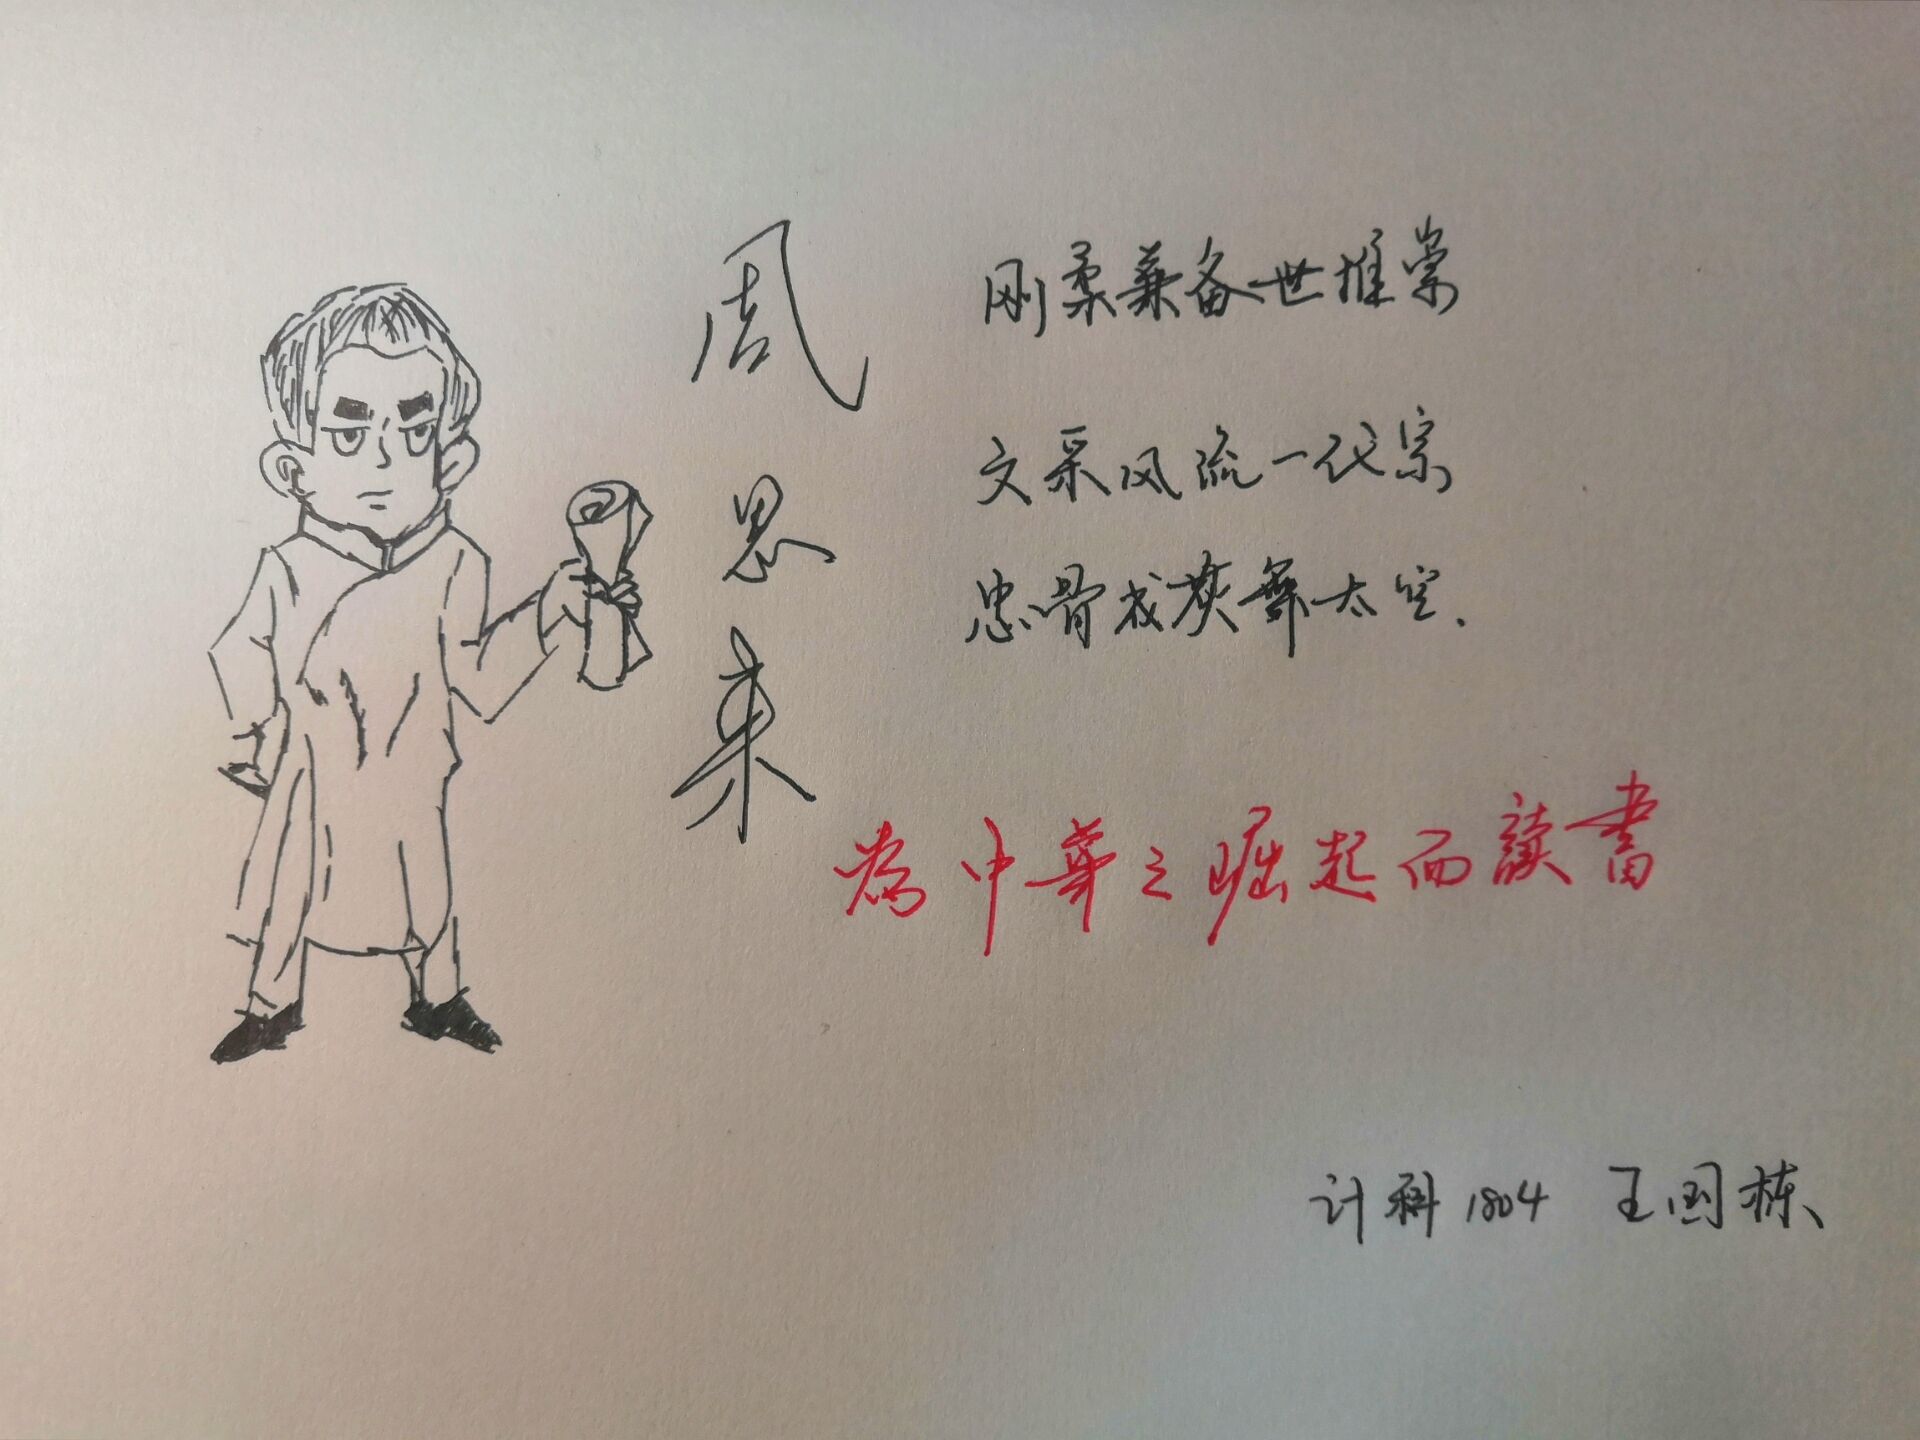 周恩来
刚柔兼备世推崇
文采风流一代宗
忠骨成灰舞太空.
為中華之崛起而讀書
计科1804 王国栋